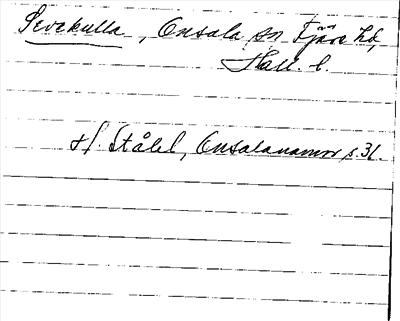 Sevekulla, Onsala sn Fjäre hd,
Hall. l.
H. Ståhl, Onsalanamn s. 31.